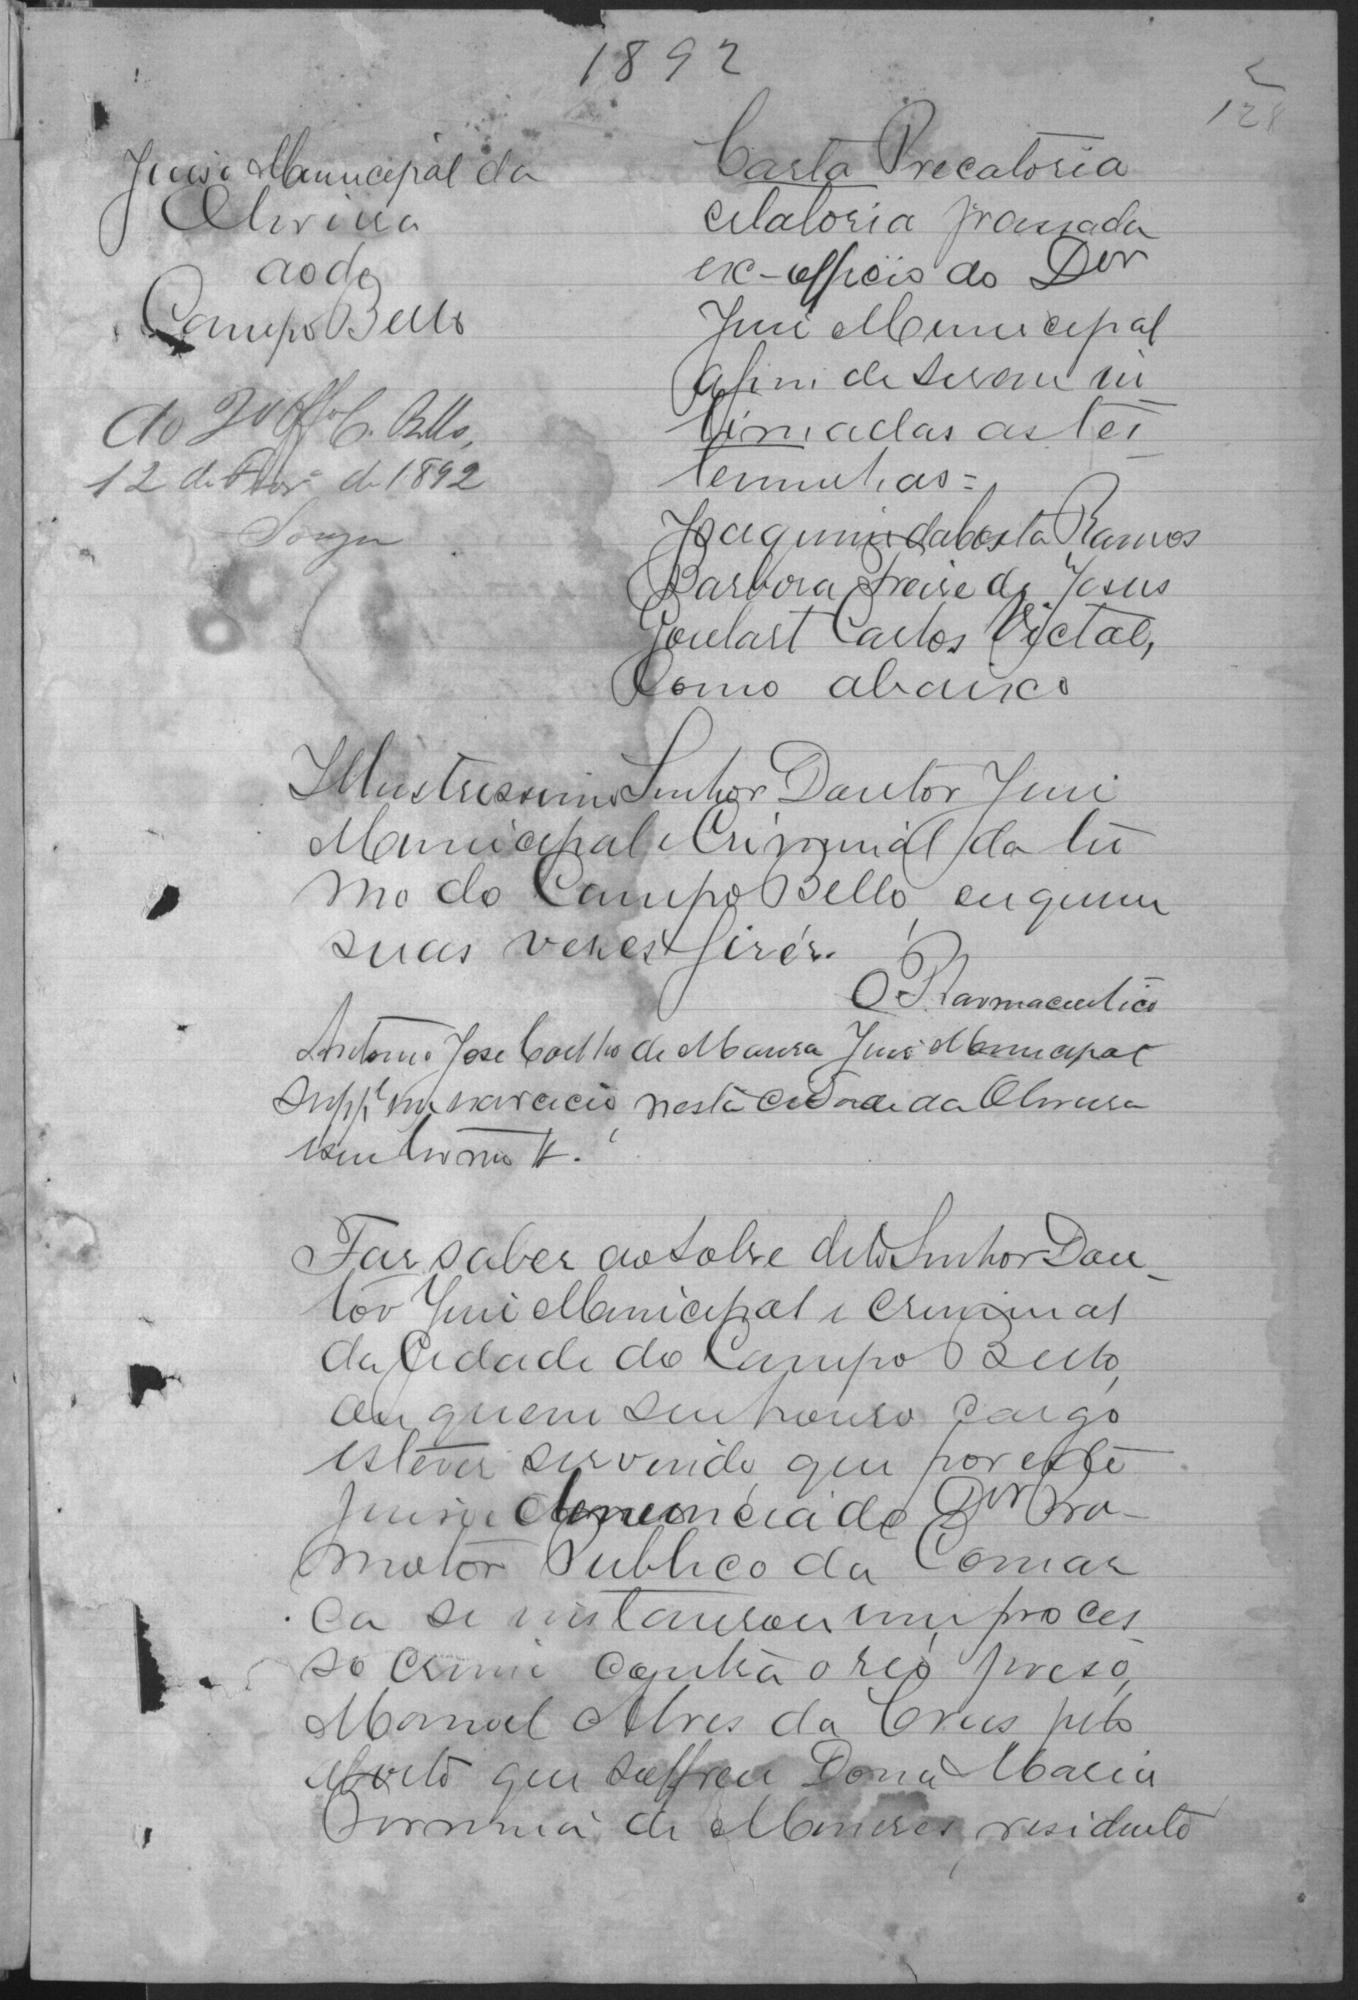 1892
128
Juiso Municipal da
Oliveira
ao do
Campo Bello
Carta Precatoria
citatoria passada
ex-officio do Dor
Juis Municipal
afim de serem in
timadas as tes
temunhas =
Joaquim da Costa Ramos
Barbora Freire de Jesus
Goulart Carlos Victal,
Como abaixo
Ao 2º Offo C. Bello,
12 de de 1892
Souza
Illustrissimo Senhor Doutor Juis
Municipal e Criminal do ter
mo do Campo Bello, ou quem
suas veses fizér.
O Pharmaceutico
Antonio Jose Coelho de Moura Juis Municipal
suppe em exarcicio nesta Cidade da Oliveira
e seu termo &.
Faz saber ao sobre dito Senhor Dou-
tor Juis Municipal e Criminal
da Cidade do Campo Bello,
ou quem seu honroso cargo
estever servindo, que por este
juiso e denuncia do Dor Pro-
motor Publico da Comar
ca se instaurou um proces
so crime contra o reo preso,
Manoel Alves da Crus pelo
furto que soffreu Dona Maria
de Meneses, residente